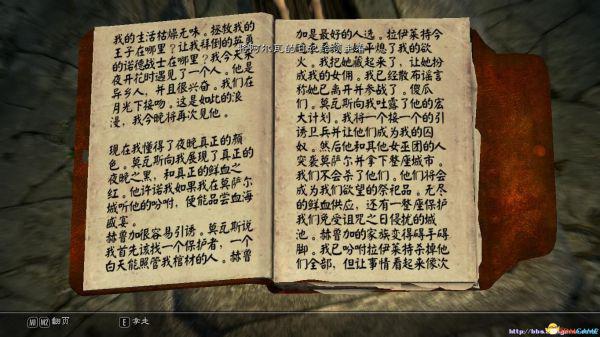 我的生活枯燥无味。拯救我的
王子在哪里？让我拜倒的英勇
的诺德战士在哪里？我今天采
夜开花时遇见了一个人。他是
异乡人，并且很兴奋。我们在
月光下接吻。这是如此的浪
漫，我今晚将再次见他。
现在我懂得了夜晚真正的颜
色。莫瓦斯向我展现了真正的
夜晚之黑，和真正的鲜血之
红。他许诺我如果我在莫萨尔
城听他的吩咐，便能品尝血海
盛宴。
赫鲁加很容易引诱。莫瓦斯说
我首先该找一个保护者，一个
白天能照管我棺材的人。赫鲁
加是最好的人选。拉伊莱特今
平熄了我的欲
火。我把她藏起来了，让她扮
成我的女佣。我已经散布谣言
称她已离开并参战了。傻瓜
们。莫瓦斯向我吐露了他的宏
大计划。我将一个接一个的引
诱卫兵并让他们成为我的囚
奴。然后他和其他女巫团的人
突袭莫萨尔并拿下整座城市。
我们不会杀了他们。他们将会
成为我们欲望的祭祀品。无尽
的鲜血供应，还有一整座保护
我们免受诅咒之日侵扰的城
池。赫鲁加的家族变得碍手碍
脚。我已吩咐拉伊莱特杀掉他
们全部，但让事情看起来像次
阿尔瓦的日记
M1 M2 翻页
E 拿走